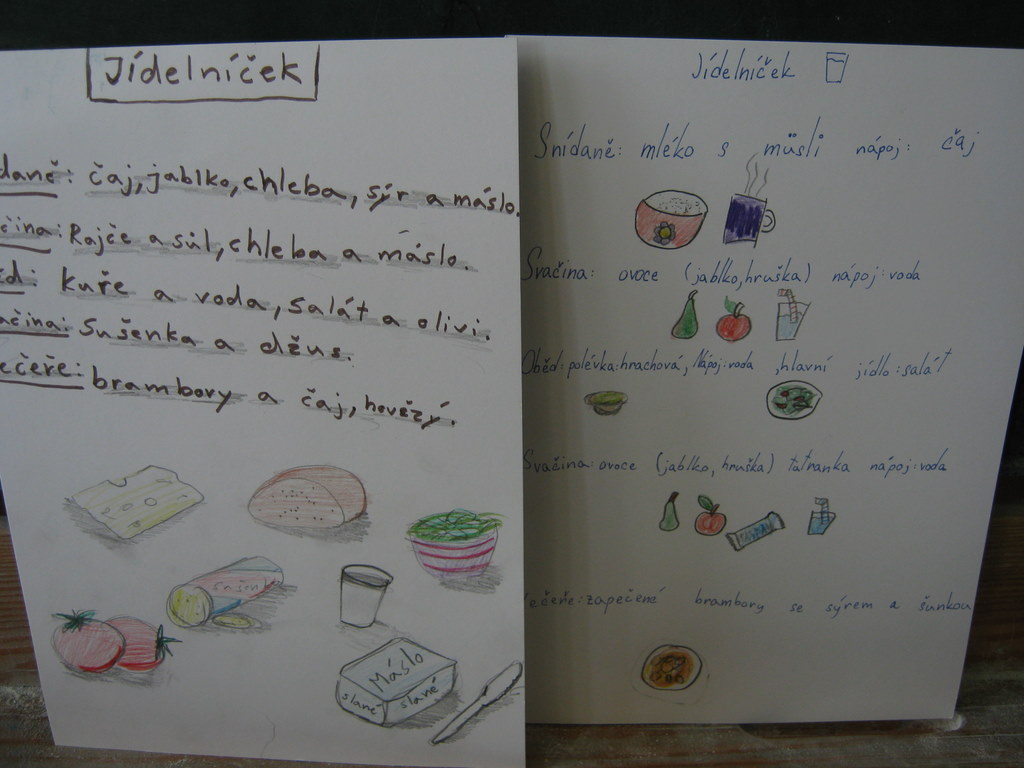 Jídelníček
daně: čaj, jablko, chleba, sýr a máslo.
čina: Rajče a sůl, chleba a máslo.
ěd: kuře a voda, salát a olivi.
ačina: Sušenka a džus.
ečeře: brambory a čaj, hovězý.
Máslo
slané slané
Jídelníček
Snídaně: mléko s müsli nápoj: čaj
Svačina: ovoce (jablko, hruška) nápoj: voda
Oběd: polévka: hrachová, Nápoj: voda , hlavní jídlo: salát
Svačina: ovoce (jablko, hruška) tatranka nápoj: voda
ečeře: zapečené brambory se sýrem a šunkou